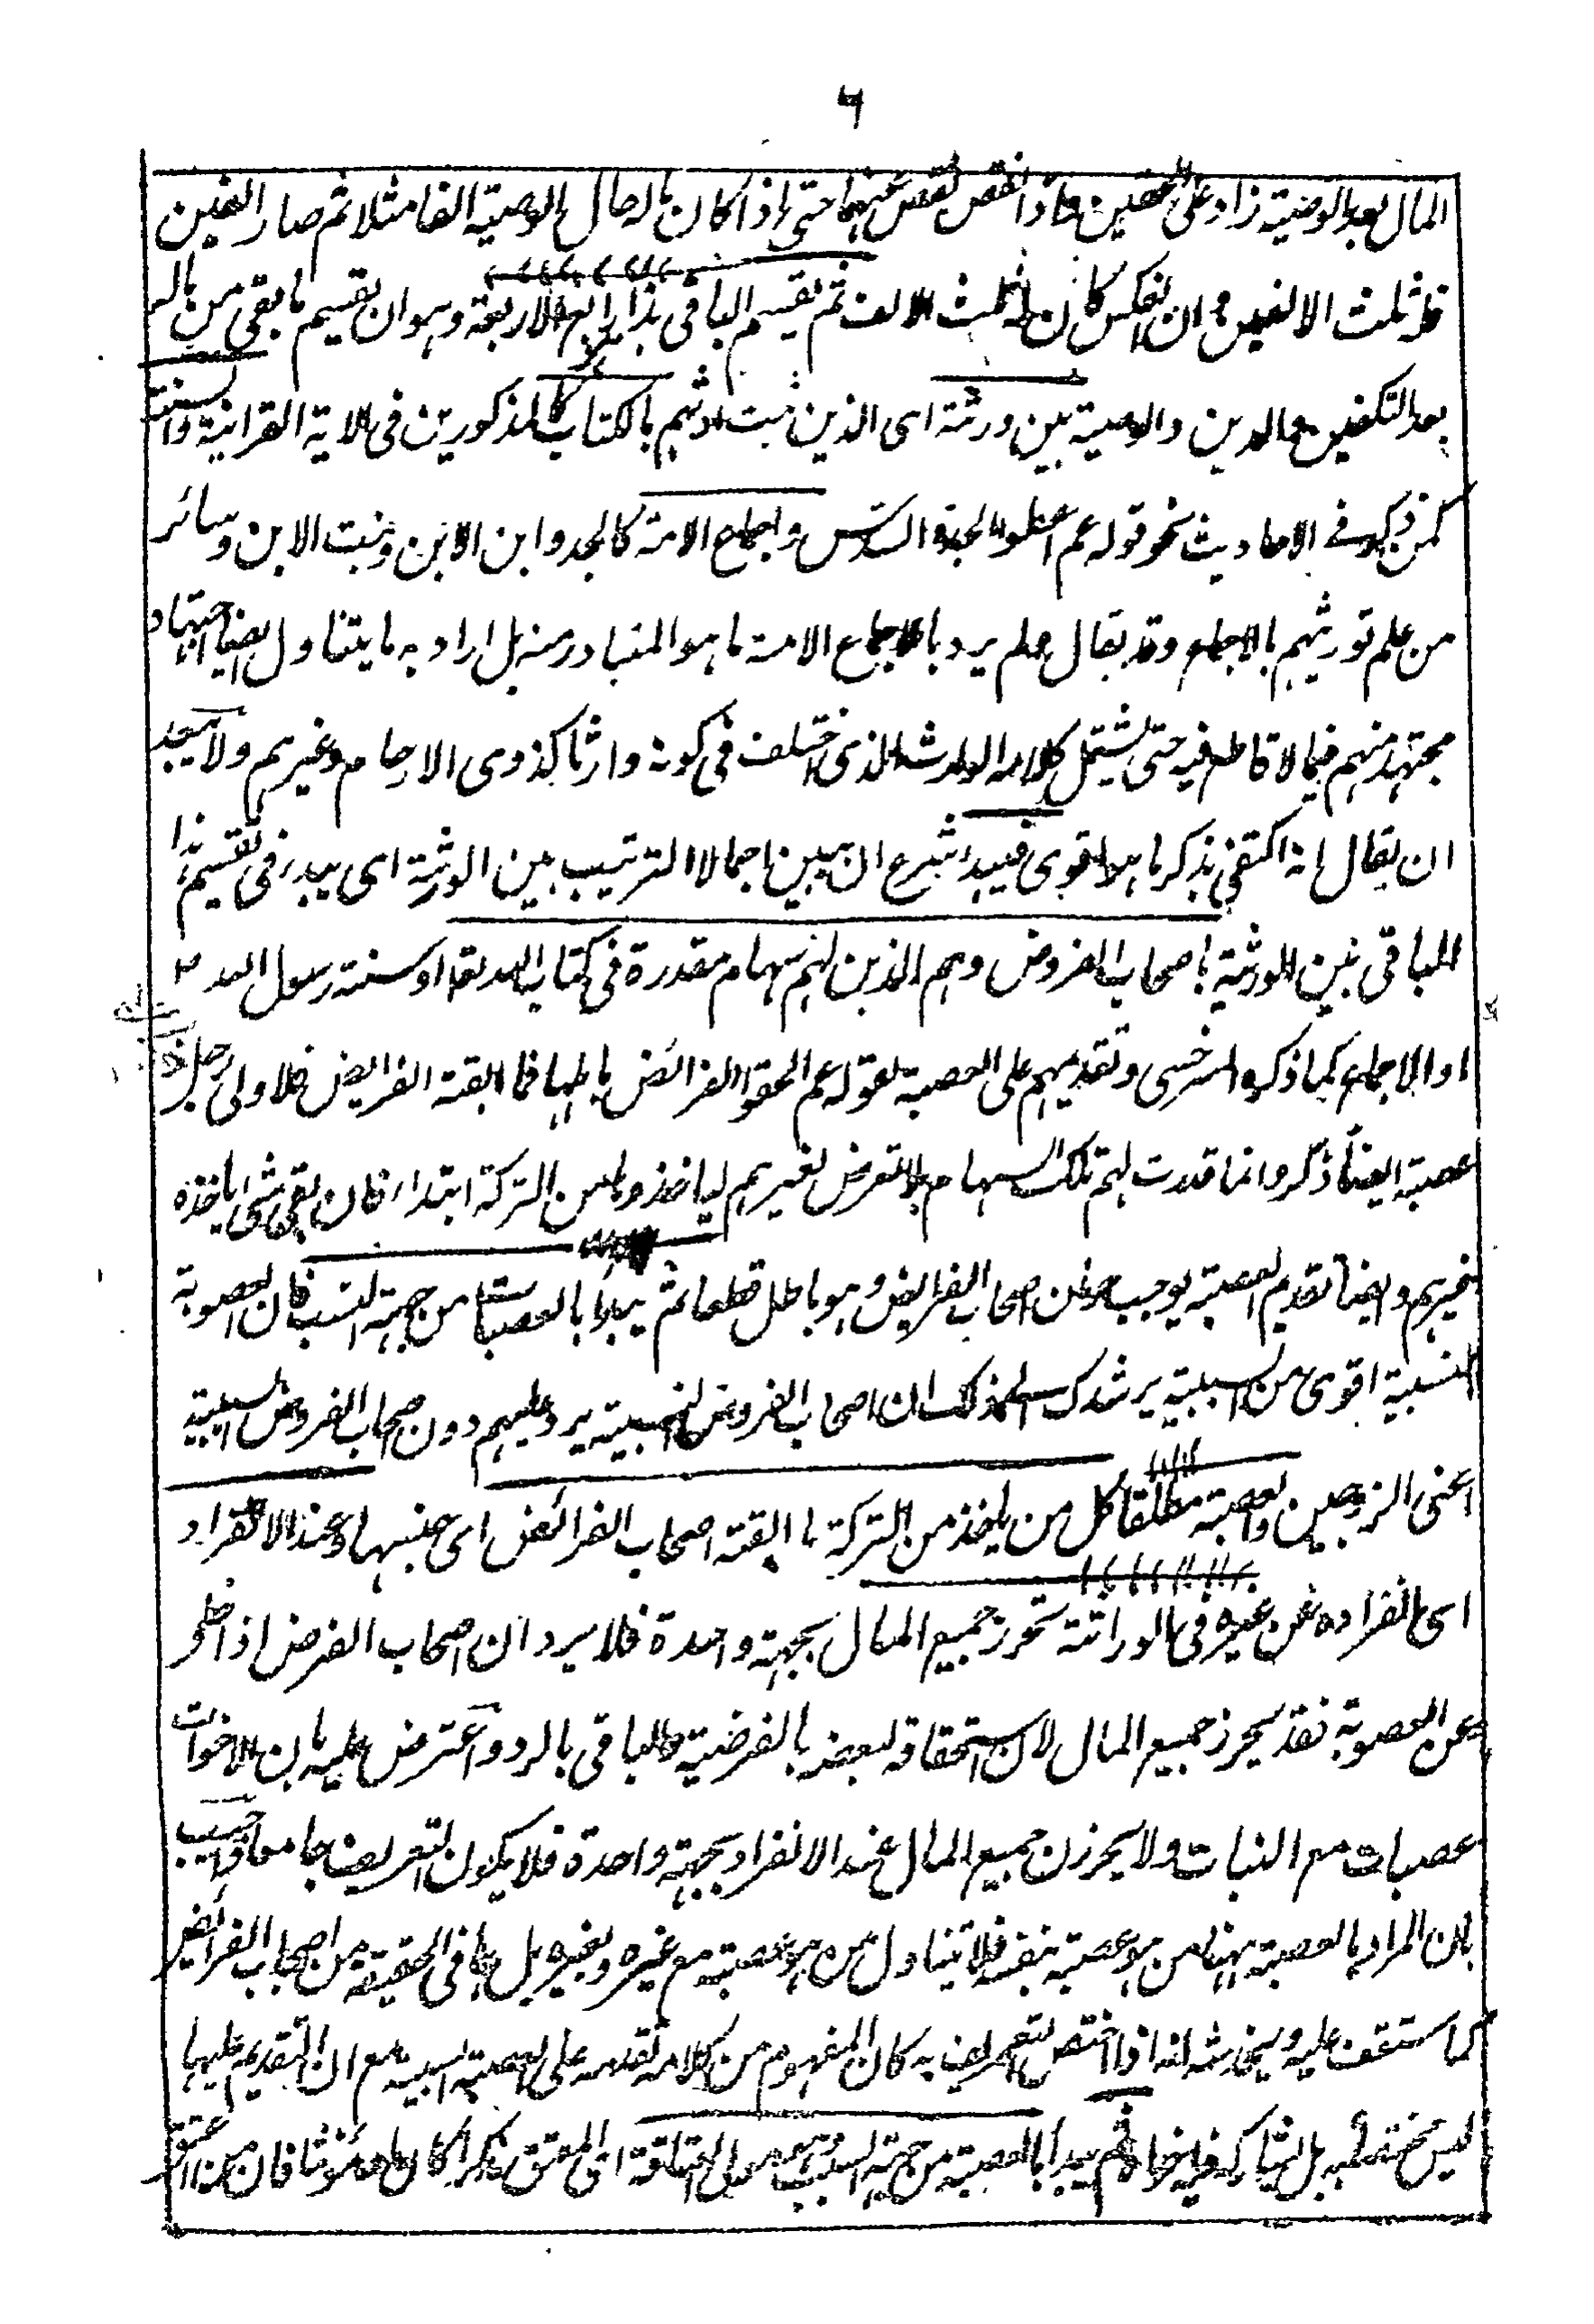 ٦
المال بعد الوصية زاد على الحقين واذا نقص نقص عنهما حتى اذا كان ماله حال الوصية الفا مثلا ثم صار الفين
فله ثلث الالفين وان انعكس كان له ثلث الالف ثم يقسم الباقى هذا رابع الاربعة وهو ان يقسم ما بقى من ماله
بعد التكفين والدين والوصية بين ورثته اى الذين ثبت ارثهم بالكتاب كالمذكورين فى الاية القرانية والسنة
كمن ذكر فى الاحاديث نحو قوله عم اعطوا الجدة السدس واجماع الامة كالجد وابن الابن وبنت الابن وسائر
من علم توريثهم بالاجماع وقد يقال لم يرد بالاجماع الامة ما هو المتبادر منه بل اراد به ما يتناول ايضا اجتهاد
مجتهد منهم فيما لا قاطع فيه حتى يشتمل كلامه الوارث الذى اختلف فى كونه وارثا كذوى الارحام وغيرهم ولا يبعد
ان يقال انه اكتفى بذكر ما هو اقوى فيبدأ شرع ان يبين اجمالا الترتيب بين الورثة اى يبدء فى تقسيم هذا
الباقى بين الورثة باصحاب الفروض وهم الذين لهم سهام مقدرة فى كتاب الله تعا او سنة رسول الله
او الاجماع كما ذكره السرخسى وتقديمهم على العصبة لقوله عم الحقوا الفرائض باهلها فما ابقته الفرايض فلاولى رجل ذكر
عصبة ايضا ذكروا انما قدرت لهم تلك السهام بلا تعرض لغيرهم ليأخذوها من التركة ابتداء فان بقى شئ ياخذه
غيرهم وايضا تقديم العصبة يوجب حرمان اصحاب الفرايض وهو باطل قطعا ثم يبدأ بالعصبات من جهة النسب فان العصوبة
النسبية اقوى من السببية يرشدك الى ذلك ان اصحاب الفروض النسبية يرد عليهم دون اصحاب الفروض السببية
اعنى الزوجين والعصبة مطلقا كل من ياخذ من التركة ما ابقته اصحاب الفرائض اى جنسها وعند الانفراد
اى انفراده عن غيره فى الوراثة يحرز جميع المال بجهة واحدة فلا يرد ان اصحاب الفرض اذا خلى
عن العصوبة فقد يحرز جميع المال لان استحقاقه لبعضه بالفرضية والباقى بالرد واعترض عليه بان الاخوات
عصبات مع البنات ولا يحرزن جميع المال عند الانفراد بجهة واحدة فلا يكون التعريف جامعا واجيب
بان المراد بالعصبة ههنا من هو عصبة بنفسه فلا يتناول من هو عصبة مع غيره وبغيره بل هما فى الحقيقة من اصحاب الفرائض
كما ستقف عليه ويخدشه انه اذا اختص التعريف به كان المفهوم من كلامه تقدمه على العصبة السببية مع ان التقديم عليها
ليس مختصا به بل يشاركه فيه اخواه ثم يبدأ بالعصبة من جهة السبب وهو مولى العتاقة اى المعتق مذكرا كان او مؤنثا فان من اعتق